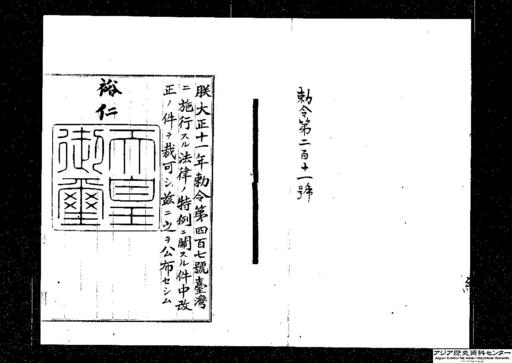 勅令第二百十一號
朕大正十一年勅令第四百七號臺灣
ニ施行スル法律ノ特例ニ關スル件中改
正ノ件ヲ裁可シ茲ニ之ヲ公布セシム
裕仁
天皇
御璽
アジア歴史資料センター
Japan Center for Asian Historical Records